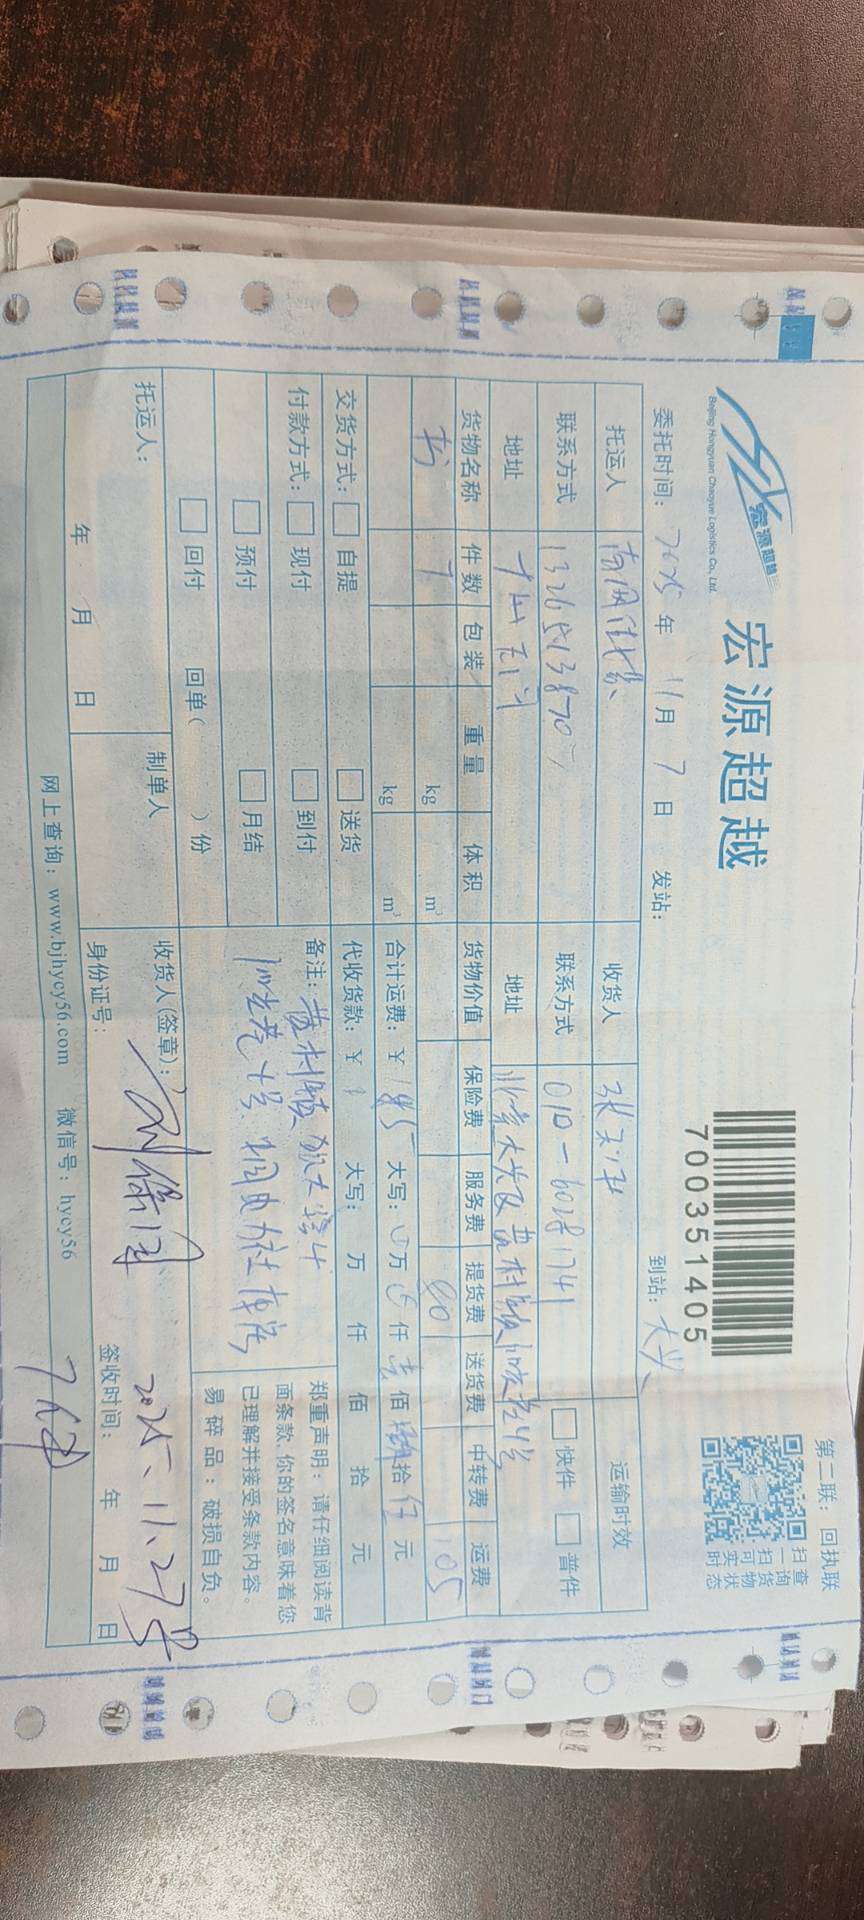 宏源超越
Beijing Hongyuan Chaoyue Logistics Co., Ltd.
宏源超越
700351405
第二联：回执联
扫一扫可实时
查询货物状态
委托时间：2025 年 11 月 7 日 发站： 到站：大兴
托运人 收货人 运输时效
联系方式 联系方式 010-60281741 快件 普件
地址 地址 北京大兴区黄村镇
货物名称 件数 包装 重量 体积 货物价值 保险费 服务费 提货费 送货费 中转费 运费
书 7 kg m³ 80 105
kg m³ 合计运费：￥185 大写：0万0仟壹佰捌拾伍元
交货方式： 自提 送货 代收货款：￥ 大写： 万 仟 佰 拾 元
付款方式： 现付 到付 备注：黄村镇
预付 月结
回付 回单（ ）份
郑重声明：请仔细阅读背
面条款，你的签名意味着您
已理解并接受条款内容。
易碎品：破损自负。
托运人： 制单人 收货人(签章)： 2025.11.27号
年 月 日 身份证号： 签收时间： 年 月 日
网上查询：www.bjhycy56.com 微信号：hycy56 7件